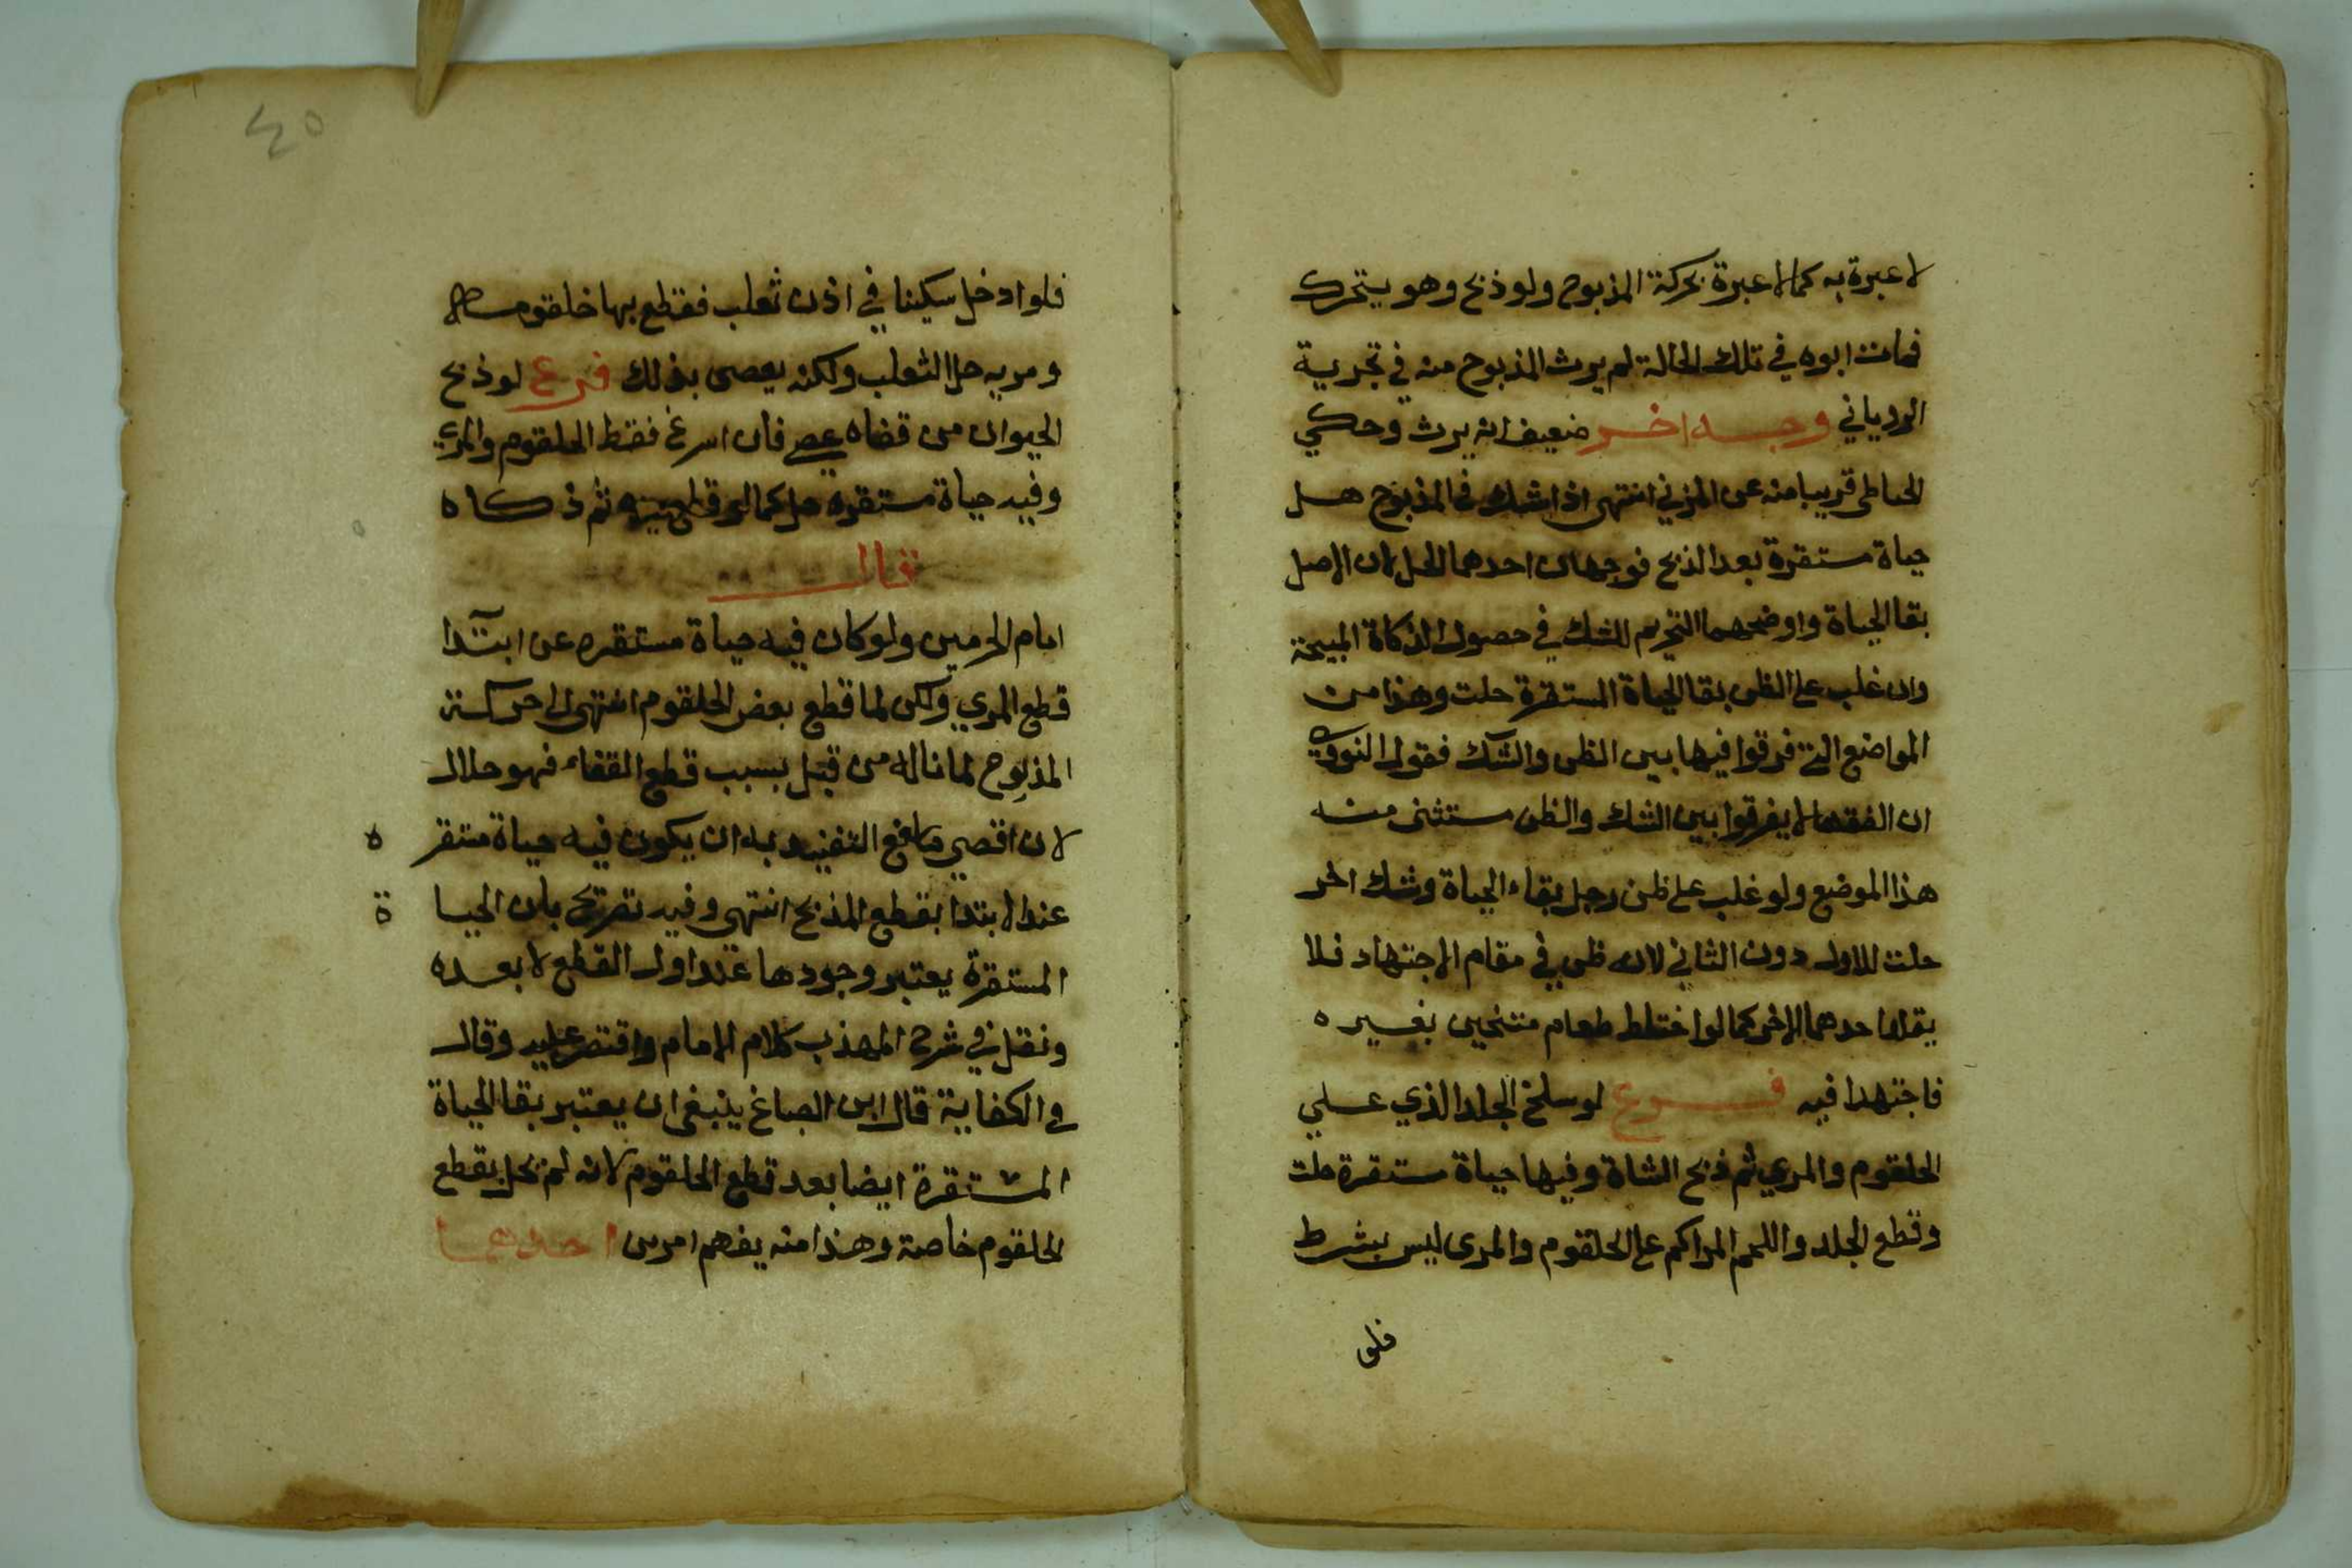 لا عبرة به كما لا عبرة بحركة المذبوح ولو ذبح وهو يتحرك
فمات ابوه في تلك الحالة لم يرث المذبوح منه في تجربة
الروياني وجه اخر ضعيف انه يرث وحكي
الحناطي قريبا منه عن المزني انتهى اذا شك في المذبوح هل
حياة مستقرة بعد الذبح فوجهان احدهما الحل لان الاصل
بقا الحياة واوضحهما التحريم للشك في حصول الذكاة المبيحة
وان غلب على الظن بقا الحياة المستقرة حلت وهذا من
المواضع التي فرقوا فيها بين الظن والشك فقول النووي
ان الفقها لا يفرقوا بين الشك والظن مستثنى منه
هذا الموضع ولو غلب على ظن رجل بقاء الحياة وشك اخر
حلت للاول دون الثاني لانه ظن في مقام الاجتهاد فلا
يقلد احدهما الاخر كما لو اختلط طعام متنجس بغيره
فاجتهدا فيه فرع لو سلخ الجلد الذي علي
الحلقوم والمري ثم ذبح الشاة وفيها حياة مستقرة حلت
وقطع الجلد واللحم المراكم على الحلقوم والمرى ليس بشرط
فلو
٤٥
فلو ادخل سكينا في اذن ثعلب فقطع بها خلقومه
ومريه حل الثعلب ولكنه يعصى بذلك فرع لو ذبح
الحيوان من قفاه عصى فان اسرع فقط الحلقوم والمري
وفيه حياة مستقرة حل كما لو قطع يده ثم ذكاه
قال
امام الحرمين ولو كان فيه حياة مستقره عن ابتدا
قطع المري ولكن لما قطع بعض الحلقوم انتهى الى حركة
المذبوح لما ناله من قبل بسبب قطع القفاء فهو حلال
لان اقصي ما وقع التعبد به ان يكون فيه حياة مستقر ة
عند الابتدا بقطع المذبح انتهى وفيه تصريح بان الحيا ة
المستقرة يعتبر وجودها عند اول القطع لا بعده
ونقل في شرح المهذب كلام الامام واقتصر عليه وقال
في الكفاية قال ابن الصباغ ينبغى ان يعتبر بقا الحياة
المستقرة ايضا بعد قطع الحلقوم لانه لم يحل بقطع
الحلقوم خاصة وهذا منه يفهم امرين احدهما